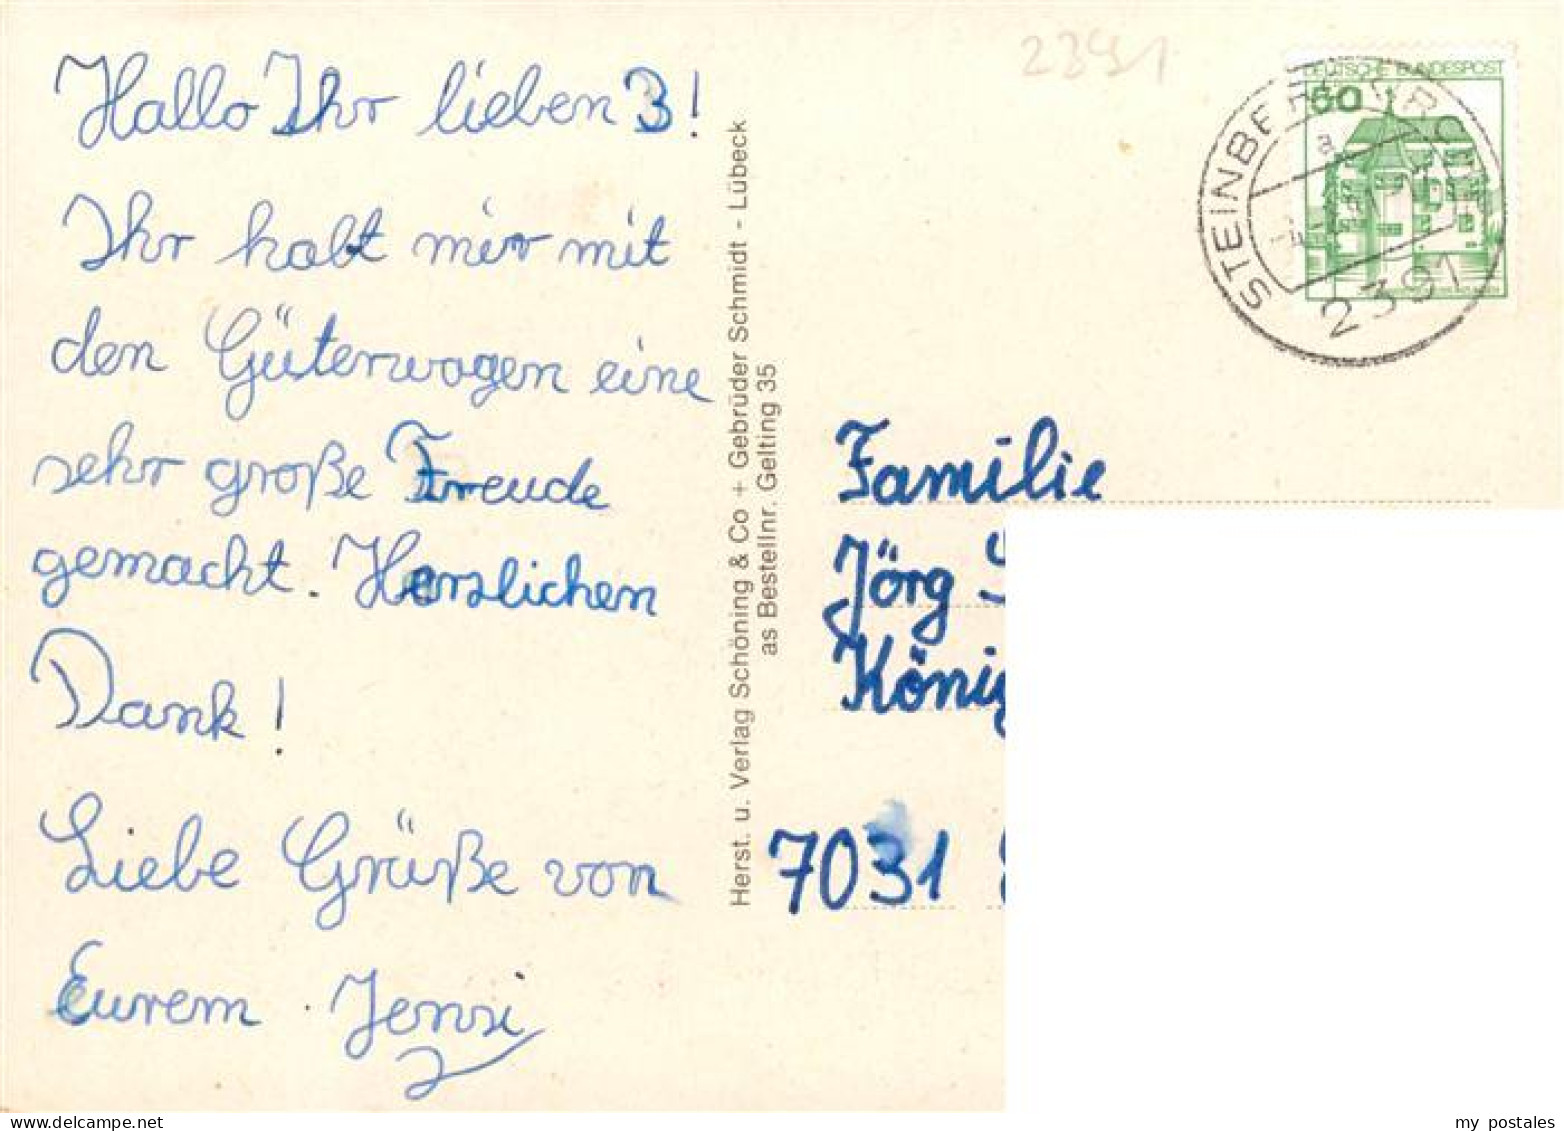 Hallo Ihr lieben 3!
Ihr habt mir mit
den Güterwagen eine
sehr große Freude
gemacht. Herzlichen
Dank!
Liebe Grüße von
Eurem Jensi
Herst. u. Verlag Schöning & Co + Gebrüder Schmidt - Lübeck
as Bestellnr. Gelting 35
2391
DEUTSCHE BUNDESPOST
50
STEINBERGKIRCHE
a
2391
Familie
Jörg
König
7031
my postales